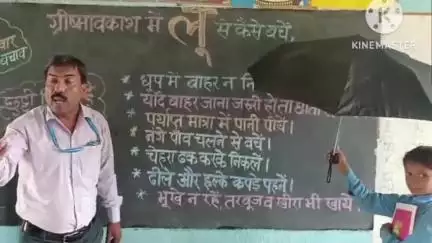 ग्रीष्मावकाश में लू से कैसे बचें,
बचाव
छुट्टी
* धूप मे बाहर न नि
* यदि बाहर जाना जरूरी हो तो छाता
* पर्याप्त मात्रा में पानी पीयें।
* नंगे पाँव चलने से बचें।
* चेहरा ढक करके निकलें।
* ढीले और हल्के कपड़े पहनें।
* भूखे न रहें, तरबूजव खीरा भी खायें
KINEMASTER
KINEMASTER